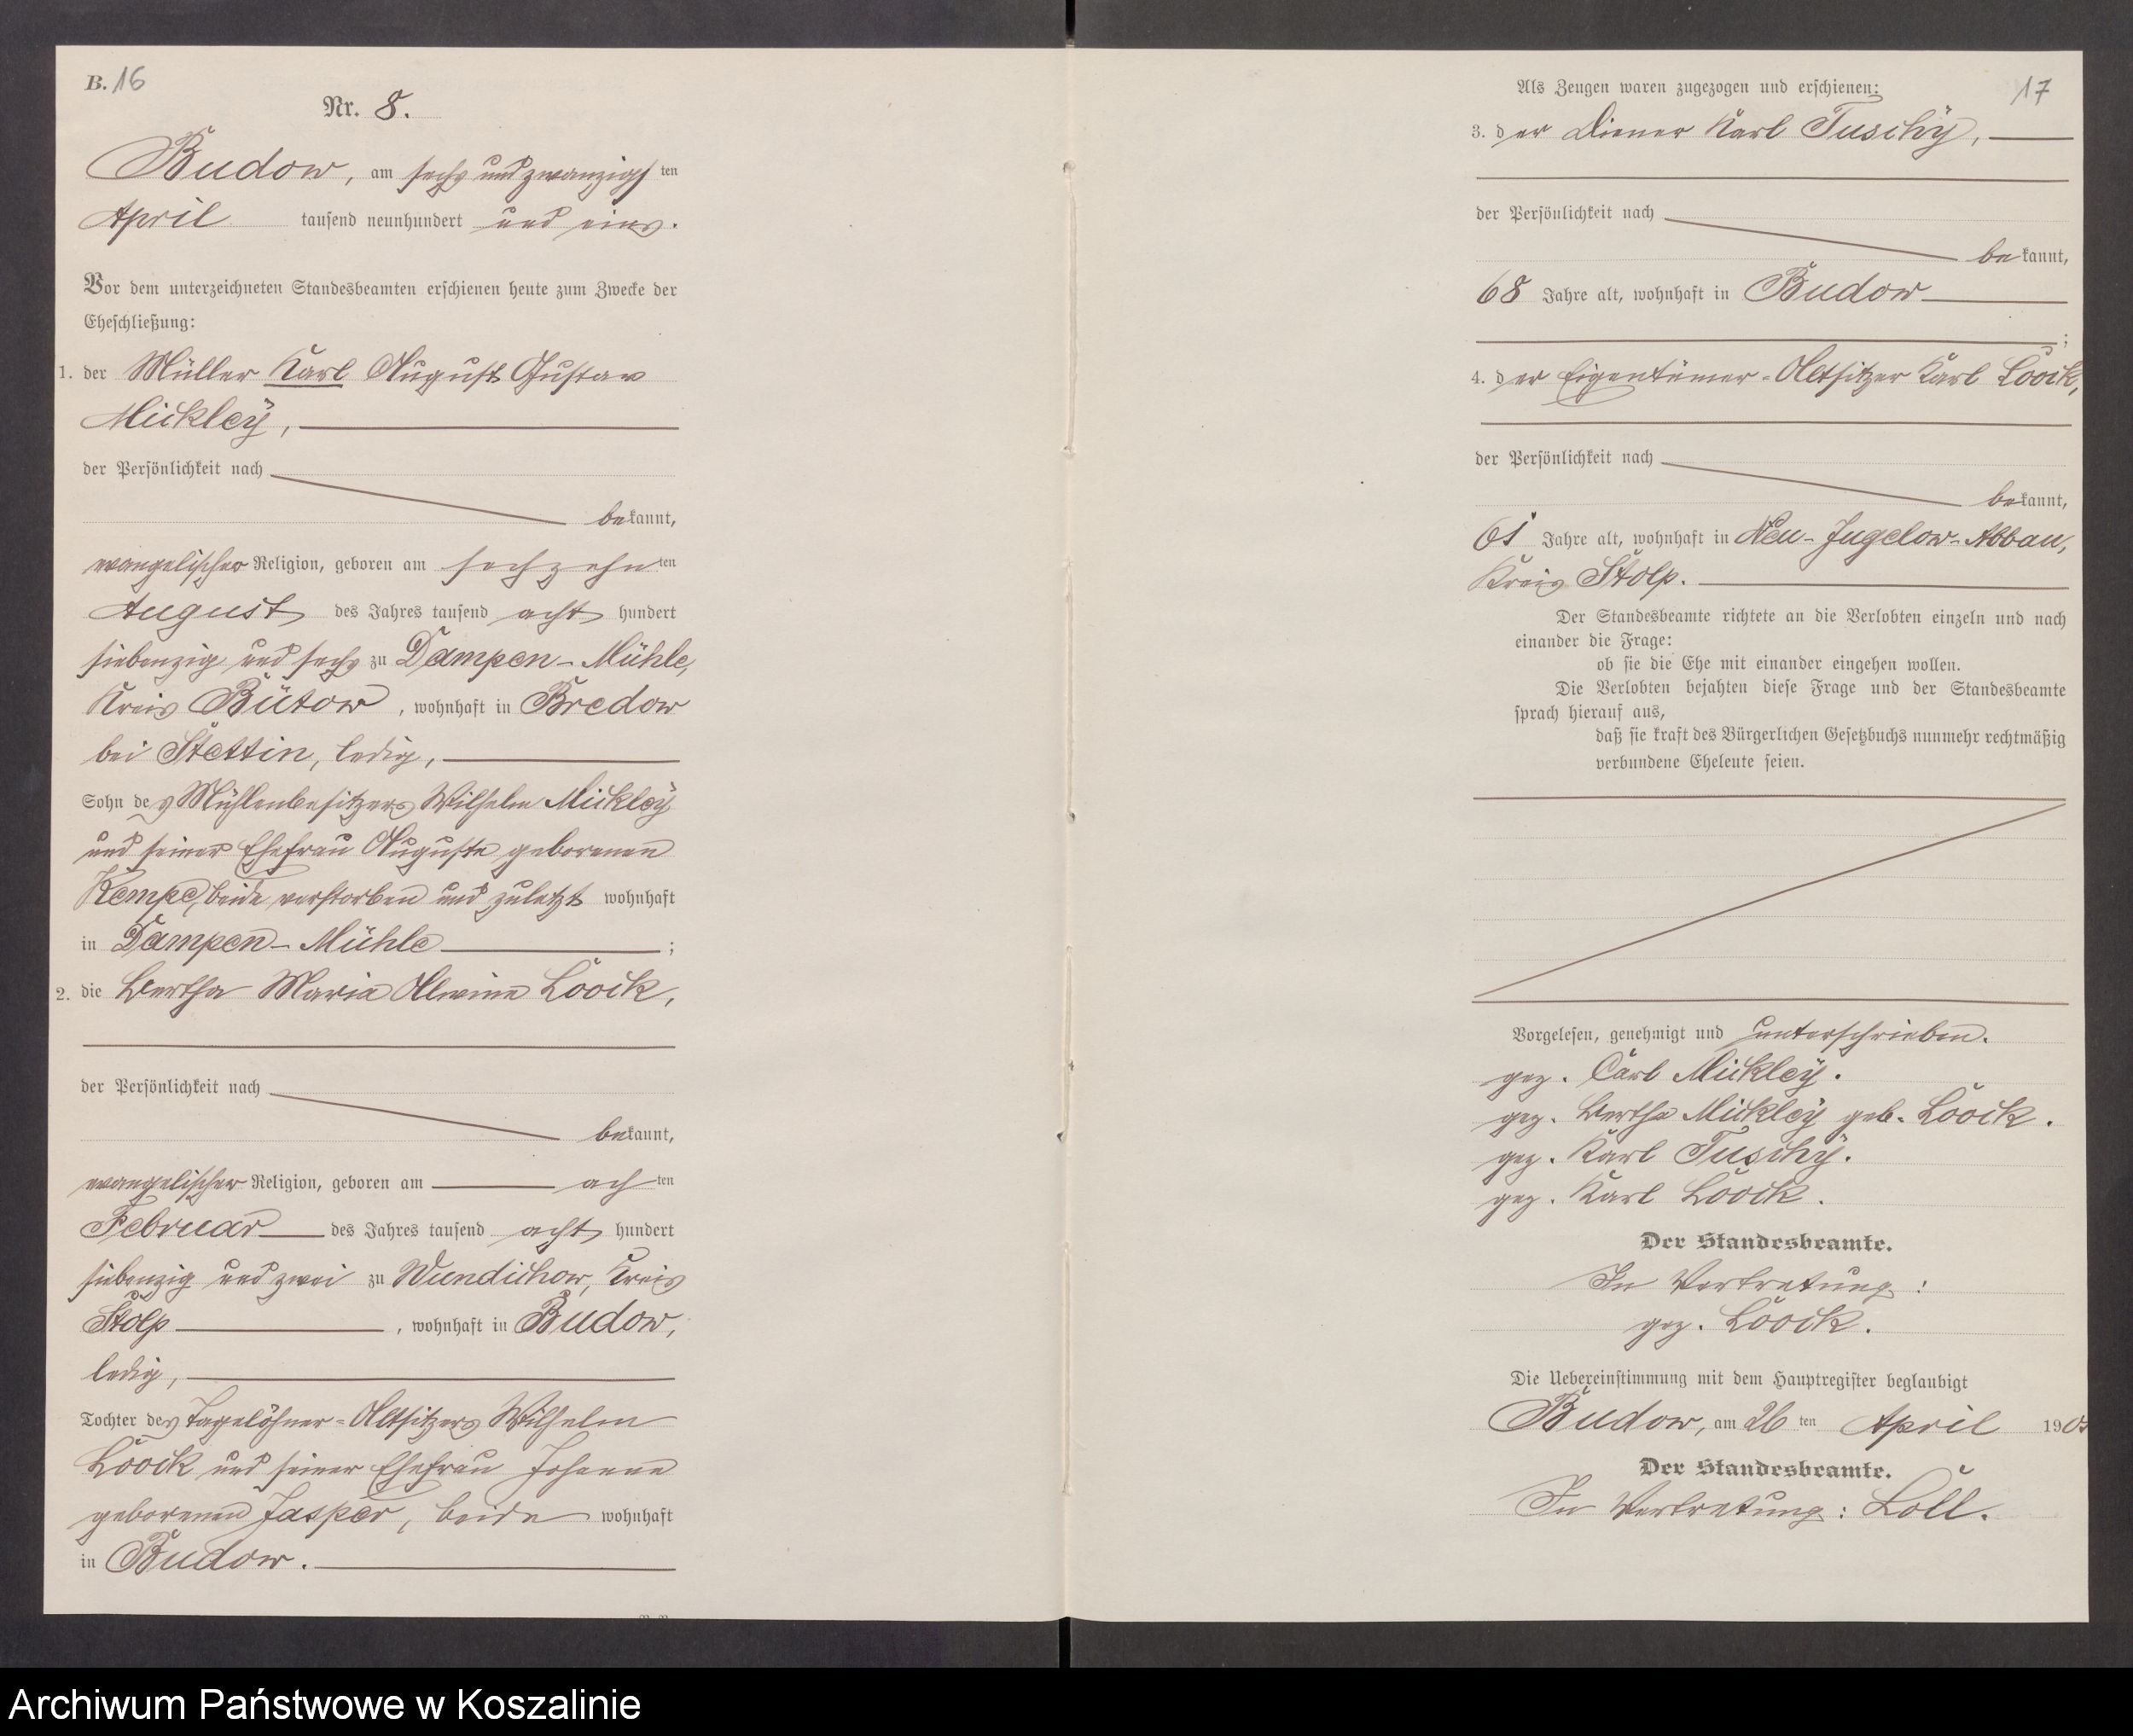 B. 16
Nr. 8.
Budow, am sechs und zwanzigsten
April tausend neunhundert und eins.
Vor dem unterzeichneten Standesbeamten erschienen heute zum Zwecke der
Eheschließung:
1. der Müller Karl August Gustav
Mickley,
der Persönlichkeit nach
bekannt,
evangelischer Religion, geboren am sechzehnten
August des Jahres tausend acht hundert
siebenzig und sechs zu Dampen-Mühle,
Kreis Bütow, wohnhaft in Bredow
bei Stettin, ledig,
Sohn des Mühlenbesitzers Wilhelm Mickley
und seiner Ehefrau Auguste geborenen
Kempe, beide verstorben und zuletzt wohnhaft
in Dampen-Mühle;
2. die Bertha Maria Alwine Loock,
der Persönlichkeit nach
bekannt,
evangelischer Religion, geboren am achten
Februar des Jahres tausend acht hundert
siebenzig und zwei zu Wundichow, Kreis
Stolp, wohnhaft in Budow,
ledig,
Tochter des Tagelöhner-Altsitzers Wilhelm
Loock und seiner Ehefrau Johanne
geborenen Jasper, beide wohnhaft
in Budow.
17
Als Zeugen waren zugezogen und erschienen:
3. der Diener Karl Tuschy,
der Persönlichkeit nach
bekannt,
68 Jahre alt, wohnhaft in Budow
;
4. der Eigentümer-Altsitzer Karl Loock,
der Persönlichkeit nach
bekannt,
61 Jahre alt, wohnhaft in Neu-Jugelow-Abbau,
Kreis Stolp.
Der Standesbeamte richtete an die Verlobten einzeln und nach
einander die Frage:
ob sie die Ehe mit einander eingehen wollen.
Die Verlobten bejahten diese Frage und der Standesbeamte
sprach hierauf aus,
daß sie kraft des Bürgerlichen Gesetzbuchs nunmehr rechtmäßig
verbundene Eheleute seien.
Vorgelesen, genehmigt und unterschrieben.
gez. Carl Mickley.
gez. Bertha Mickley geb. Loock.
gez. Karl Tuschy.
gez. Karl Loock.
Der Standesbeamte.
In Vertretung:
gez. Loock.
Die Uebereinstimmung mit dem Hauptregister beglaubigt
Budow, am 26ten April 1901
Der Standesbeamte.
In Vertretung:
Archiwum Państwowe w Koszalinie